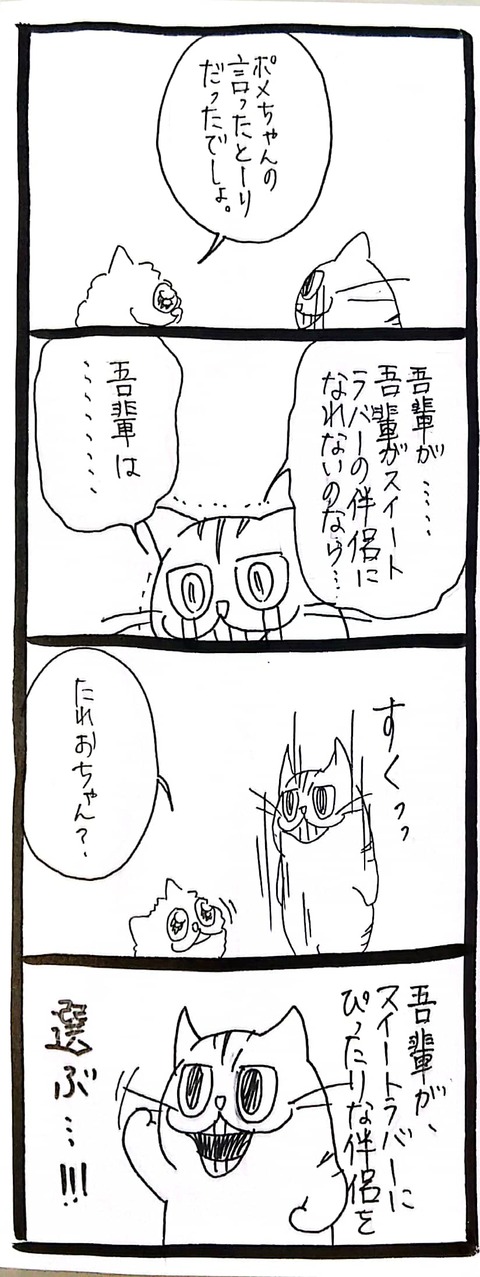 ポメちゃんの
言ったとーり
だったでしょ。
吾輩が……
吾輩がスイート
ラバーの伴侶に
なれないのなら…
吾輩は
………
すくっ
たれおちゃん？
吾輩が、
スイートラバーに
ぴったりな伴侶を
選ぶ…!!!